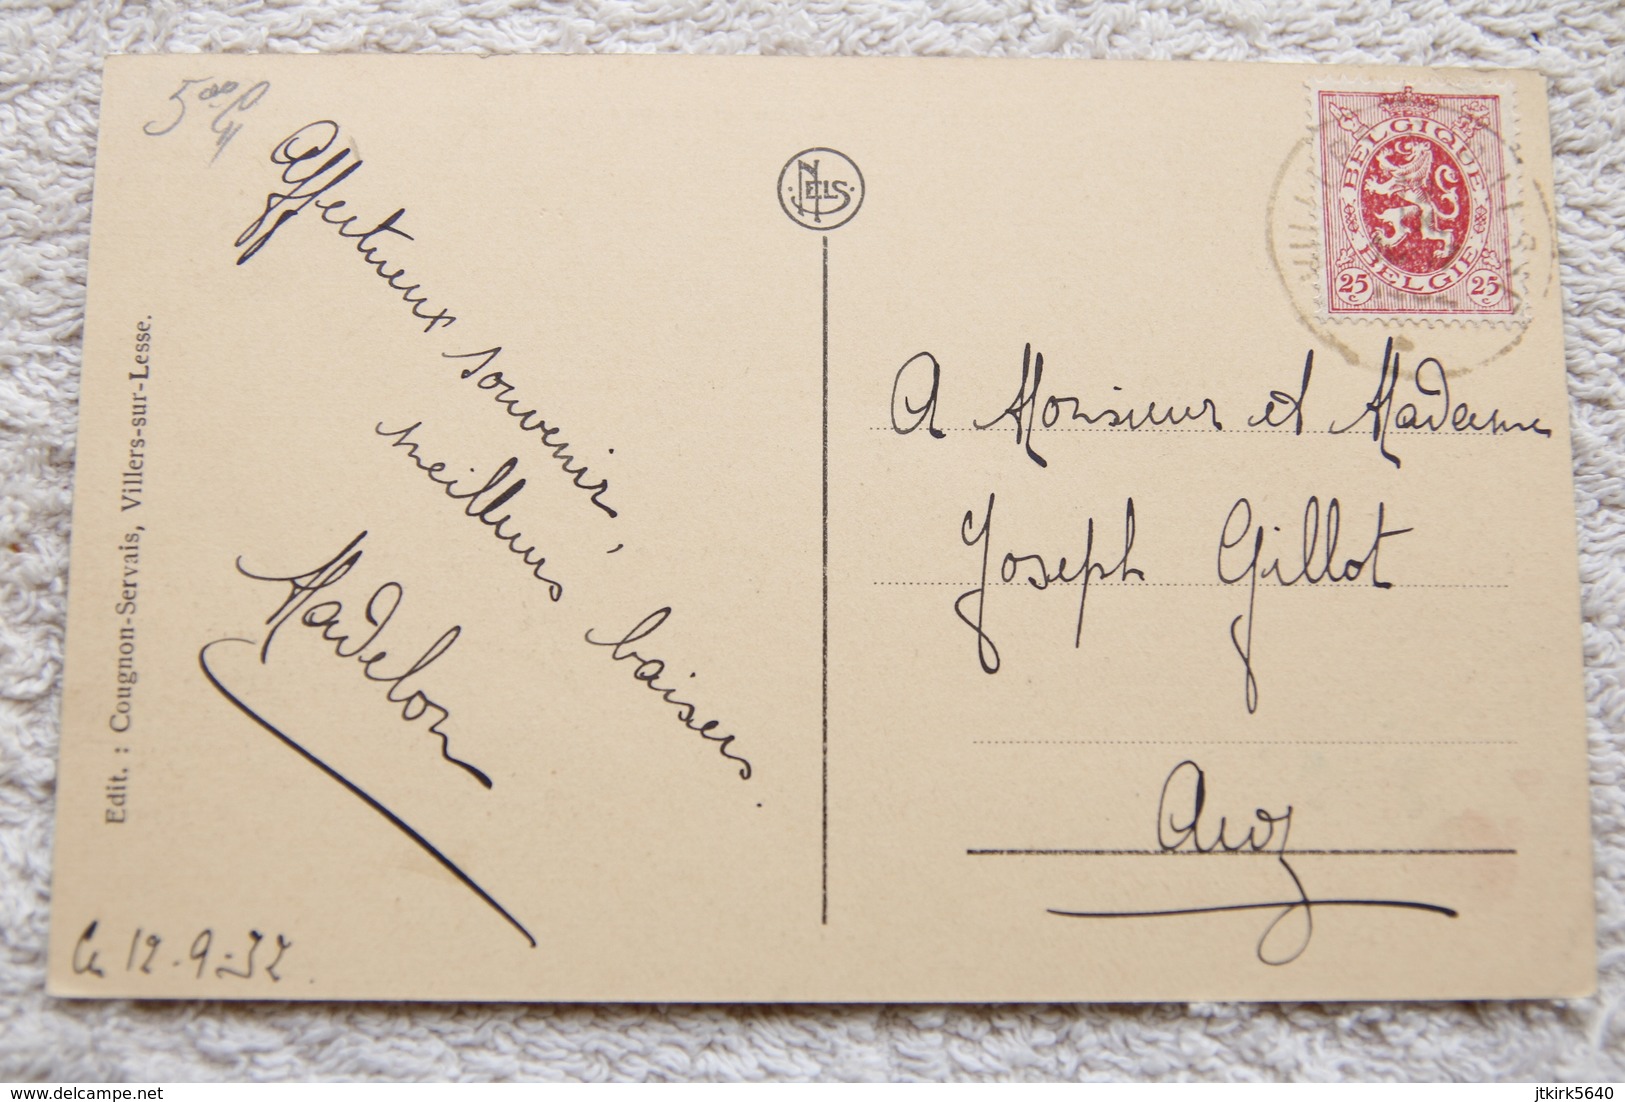 Affectueux souvenir,
meilleurs baisers.
Madelon
Le 12-9-32
Edit. : Cougnon-Servais, Villers-sur-Lesse.
NELS
BELGIQUE
BELGIE
25 c 25 c
A Monsieur et Madame
Joseph Gillot
delcampe.net
jtkirk5640